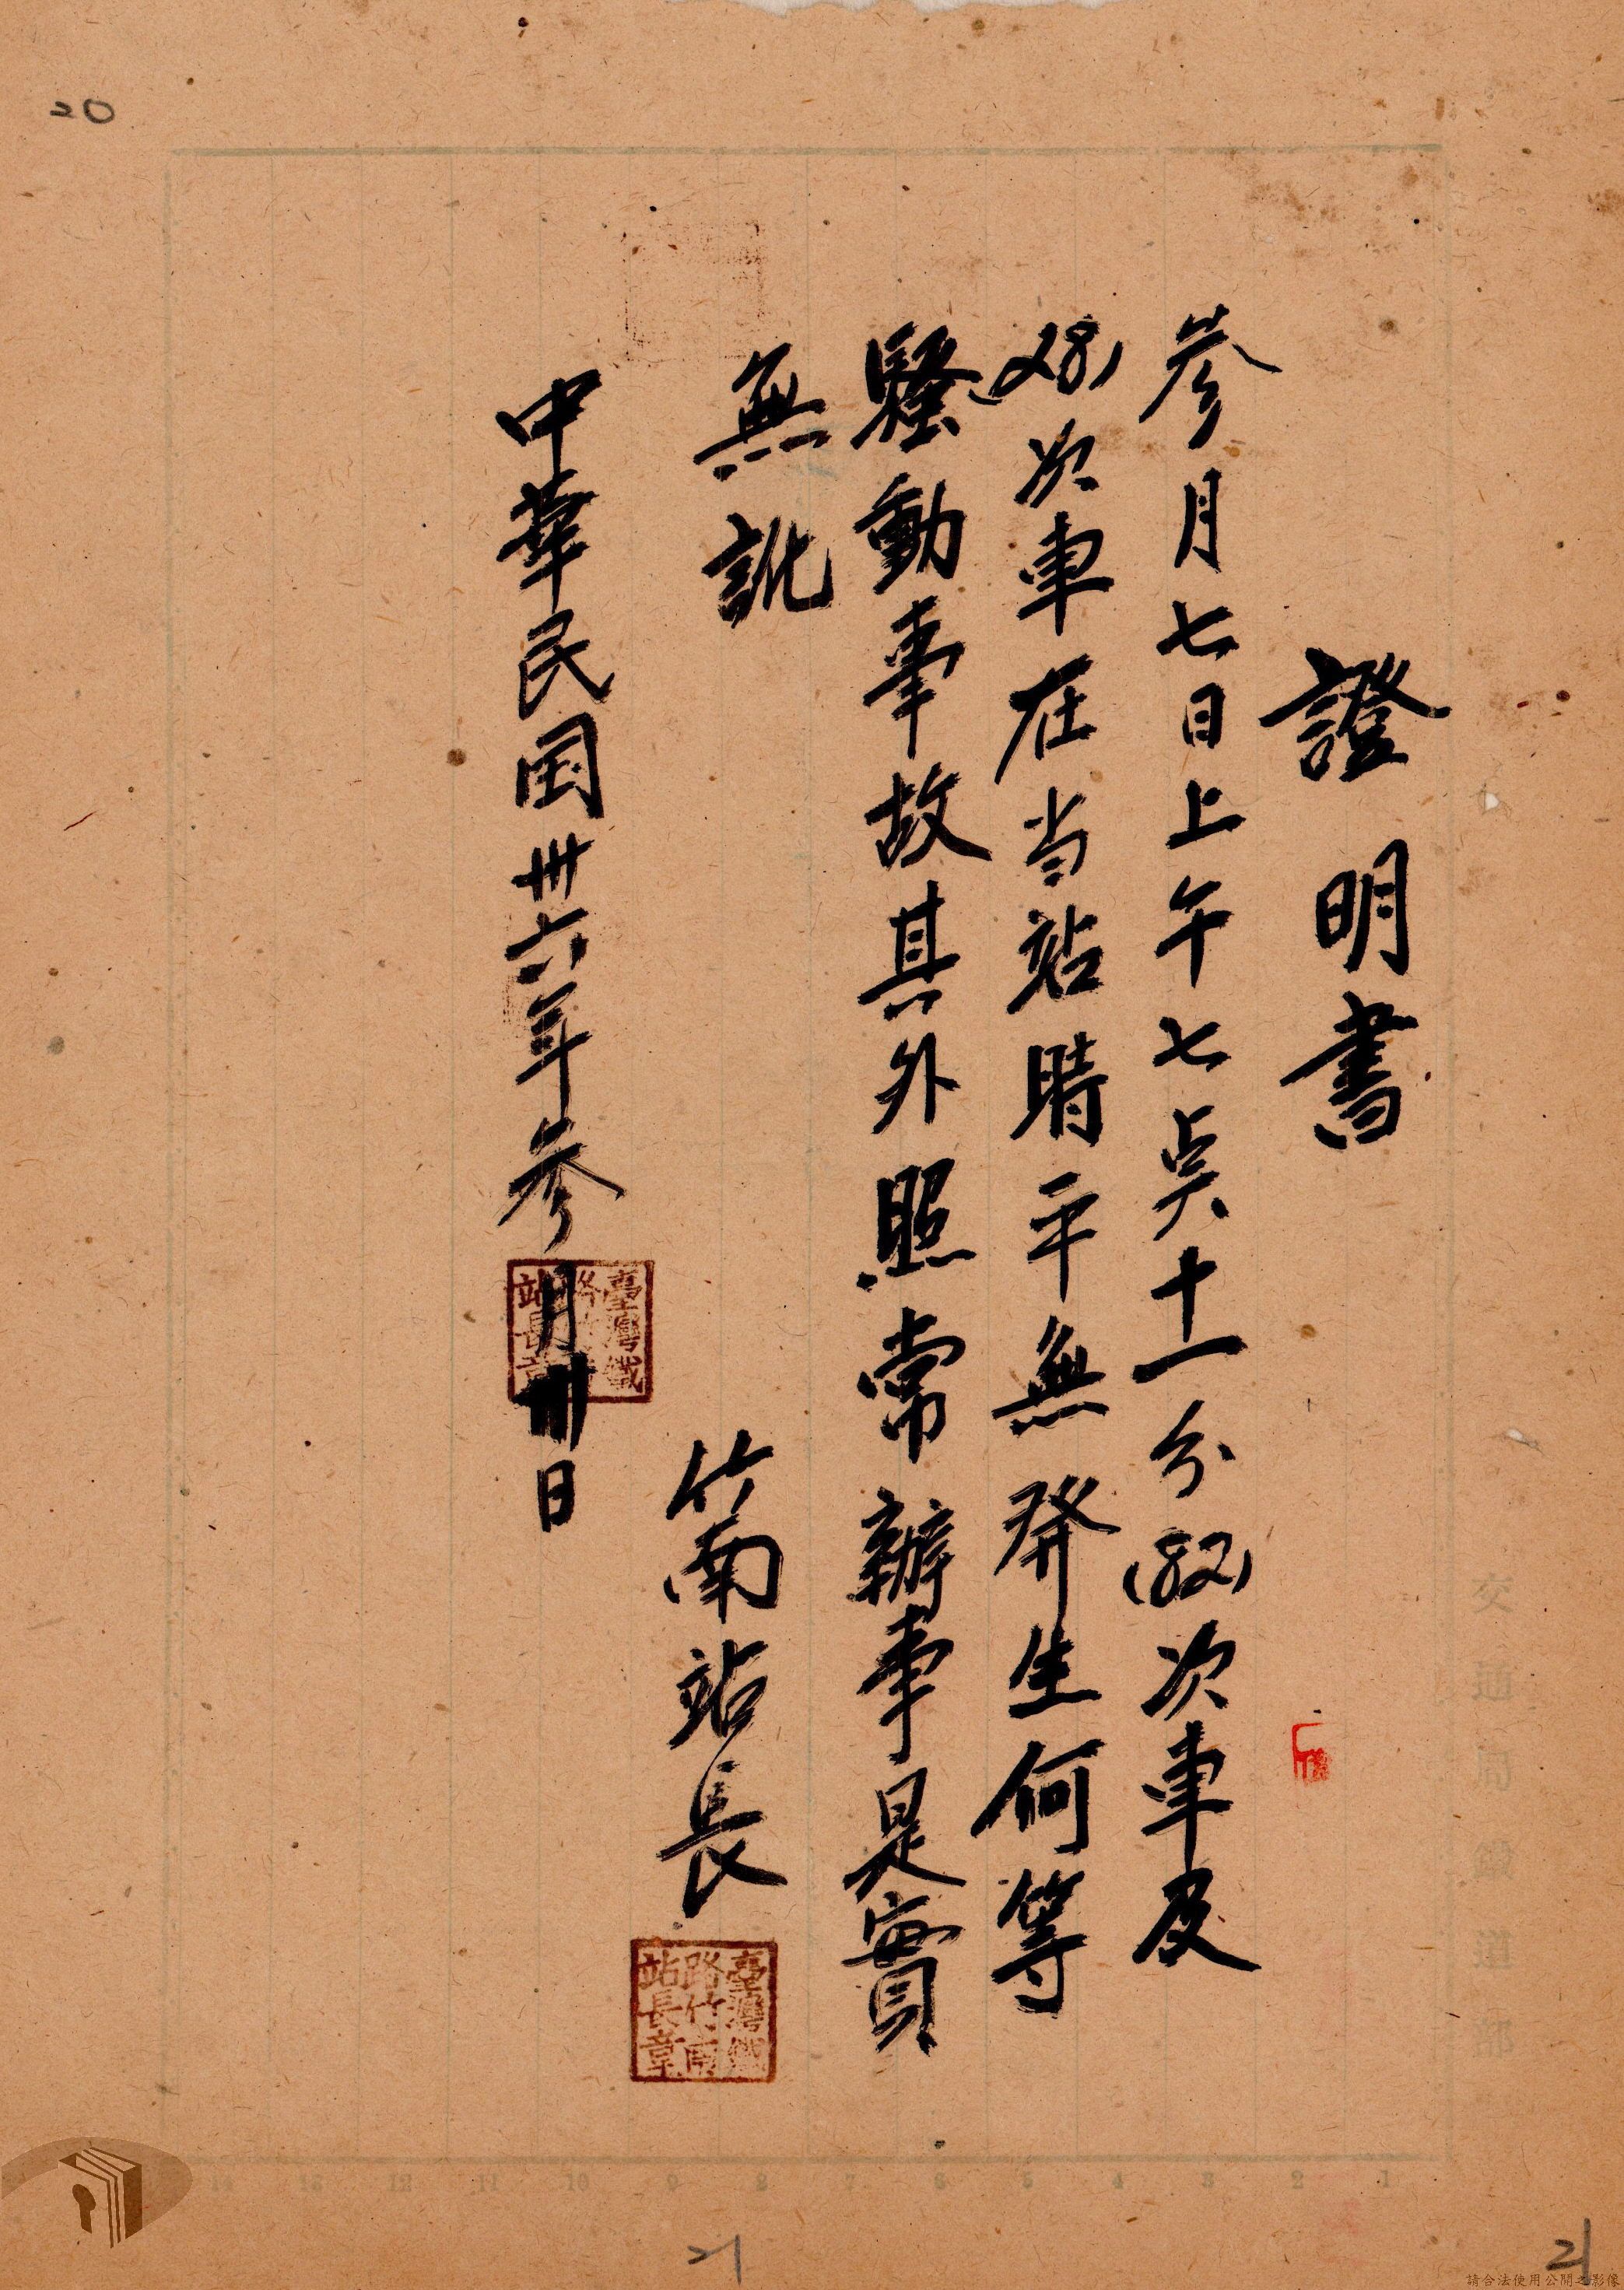 證明書
參月七日上午七奌十一分(82)次車及
(28)次車在当站時平無発生何等
騷動事故其外照常辦事是實
無訛
竹南站長
臺灣鐵
路竹南
站長章
中華民国卅六年參月卅日
臺灣鐵
站長章
20
交通局鐵道部
14 13 12 11 10 9 8 7 6 5 4 3 2 1
21
21
請合法使用公開之影像